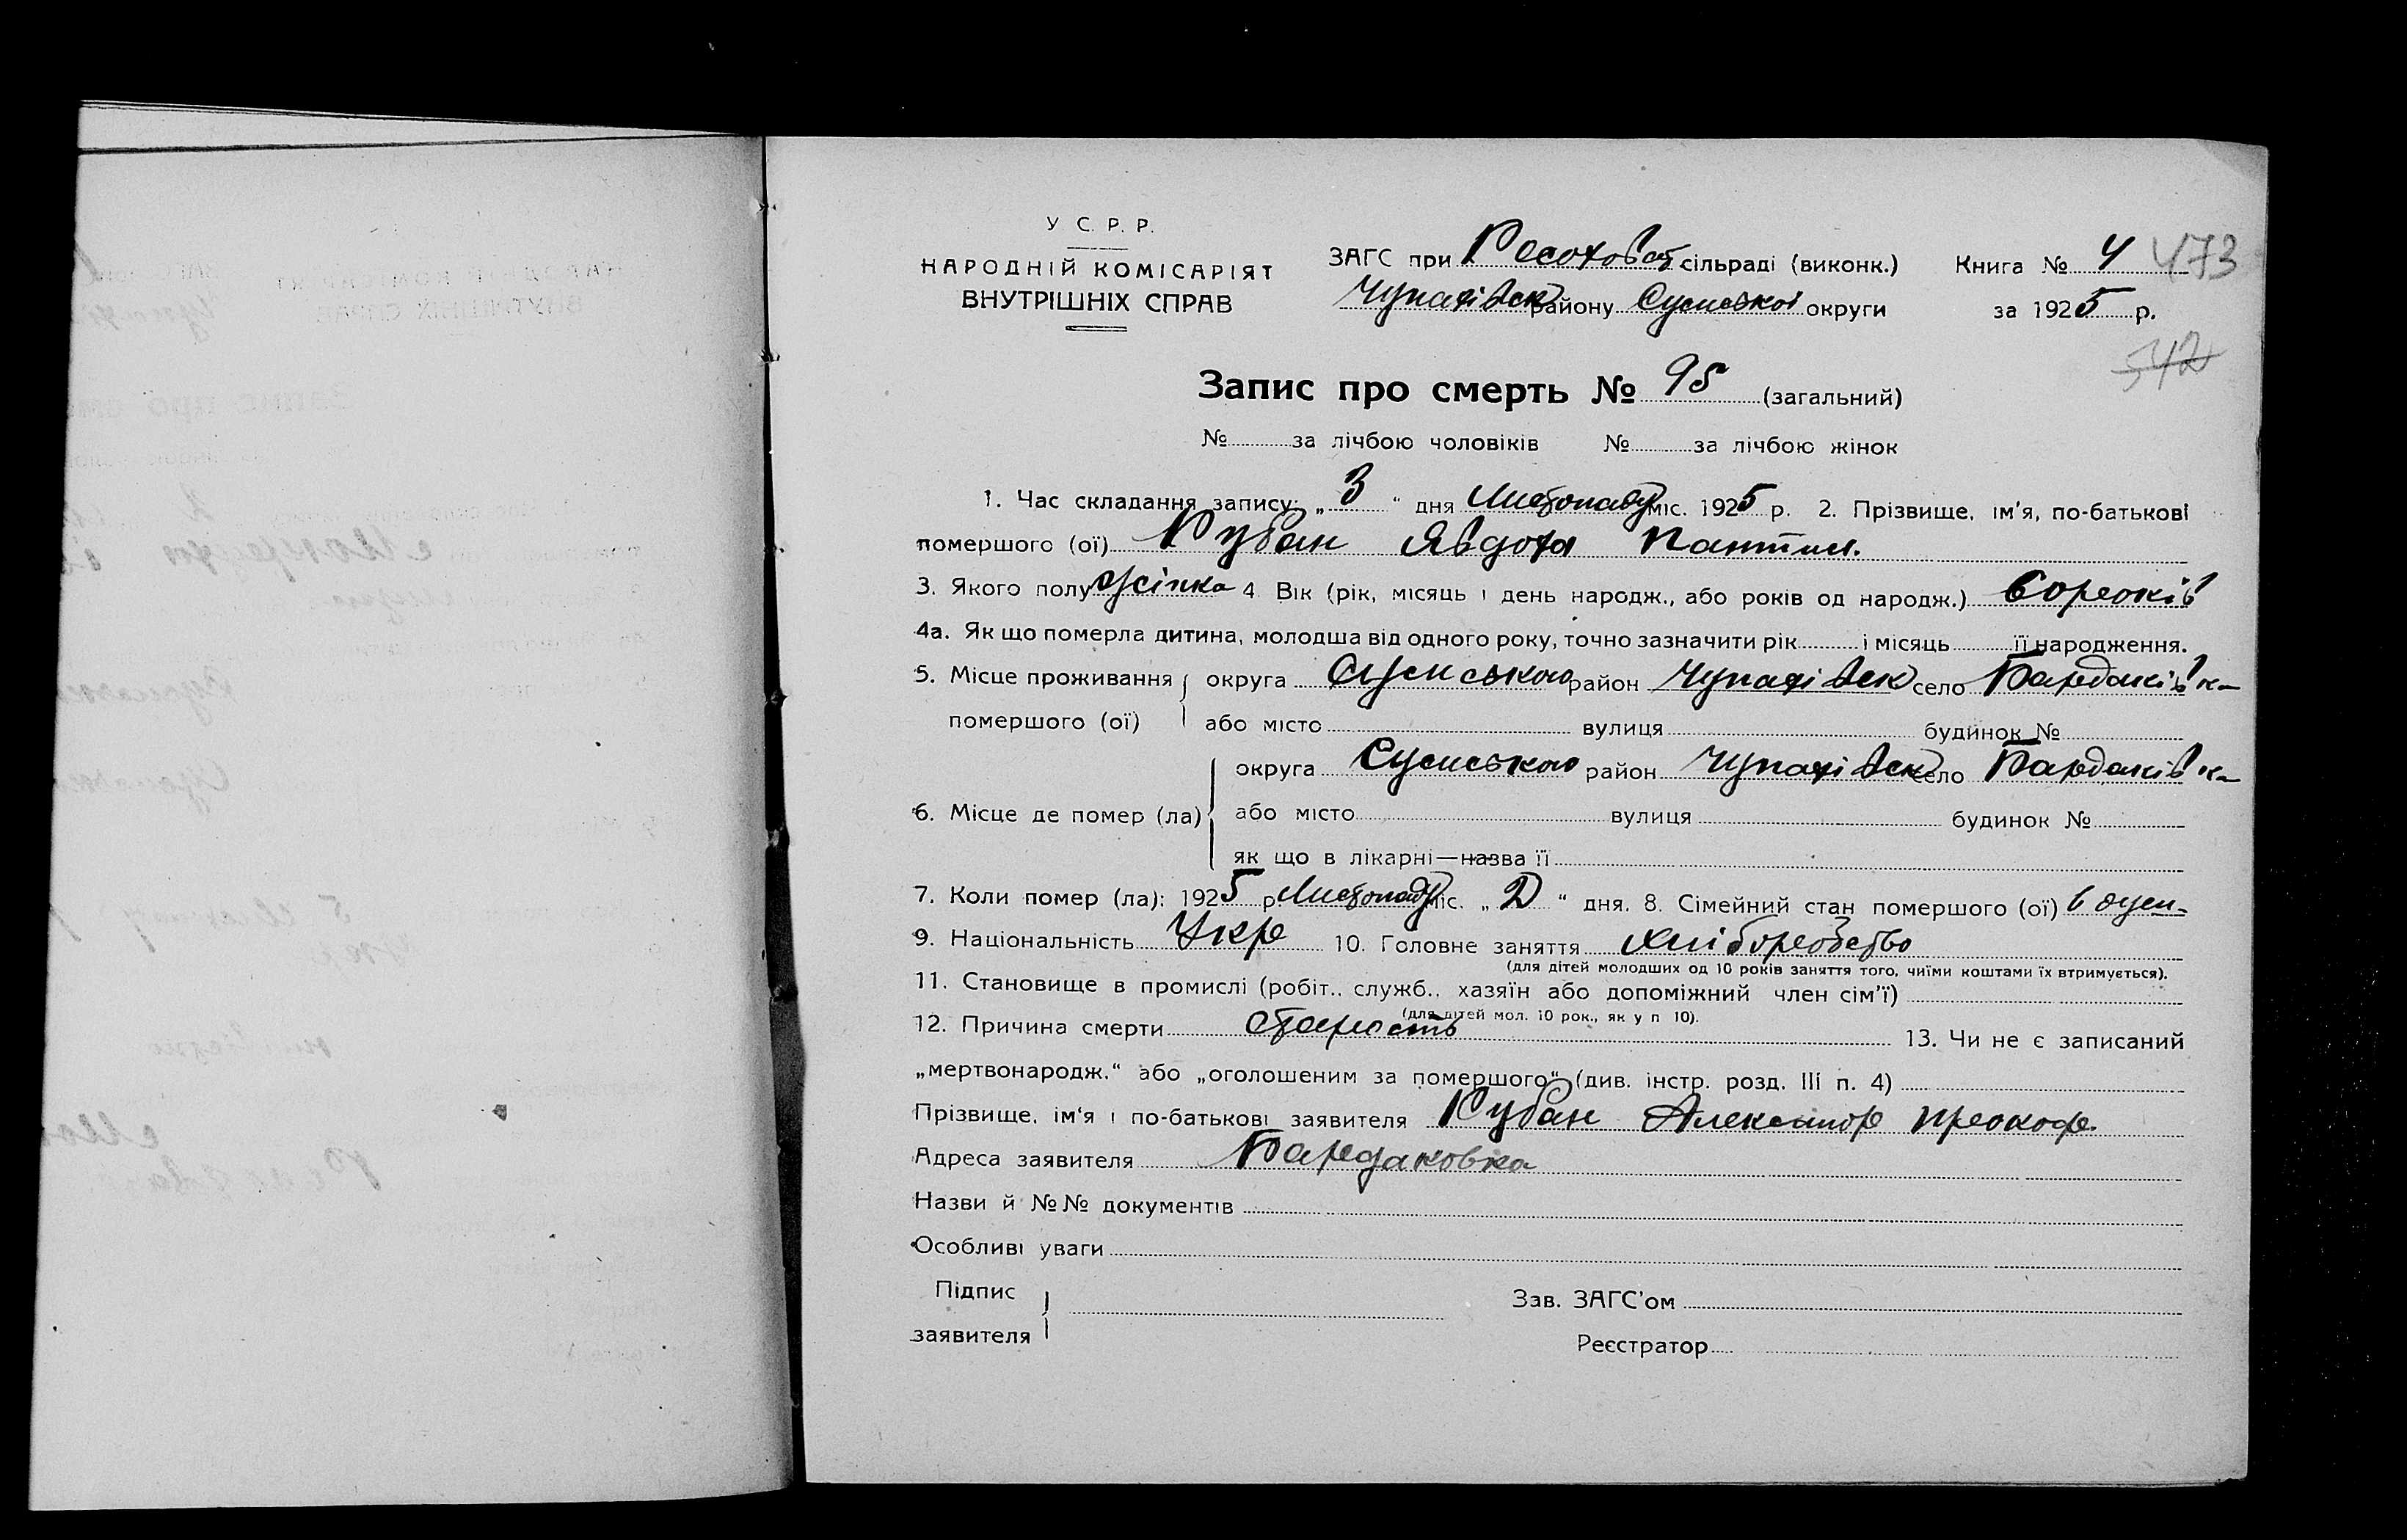 У С. Р. Р.
НАРОДНІЙ КОМІСАРІЯТ
ВНУТРІШНІХ СПРАВ
ЗАГС при сільраді (виконк.)
Чупахівськ району Сумської округи
Книга № 4 473
за 1925 р.
542
Запис про смерть № 95 (загальний)
№ за лічбою чоловіків № за лічбою жінок
1. Час складання запису: „ 3 “ дня Листопаду міс. 1925 р. 2. Прізвище, ім'я, по-батькові
помершого (ої) Кубан Явдоха
3. Якого полу жінка 4. Вік (рік, місяць і день народж., або років од народж.)
4а. Як що померла дитина, молодша від одного року, точно зазначити рік і місяць її народження.
5. Місце проживання округа Сумського район Чупахівськ село Бардаківка
помершого (ої) або місто вулиця будинок №
округа Сумського район Чупахівськ село Бардаківка
6. Місце де помер (ла) або місто вулиця будинок №
як що в лікарні—назва її
7. Коли помер (ла): 1925 р. Листопаду міс. „ 2 “ дня. 8. Сімейний стан помершого (ої)
9. Національність Укр 10. Головне заняття хліборобство
(для дітей молодших од 10 років заняття того, чиїми коштами їх втримується).
11. Становище в промислі (робіт., служб., хазяїн або допоміжний член сім'ї)
(для дітей мол. 10 рок., як у п 10).
12. Причина смерти старость 13. Чи не є записаний
„мертвонародж.“ або „оголошеним за помершого“ (див. інстр. розд. III п. 4)
Прізвище, ім'я і по-батькові заявителя Кубан Александр
Адреса заявителя Бардаковка
Назви й №№ документів
Особливі уваги
Підпис
заявителя
Зав. ЗАГС'ом
Реєстратор